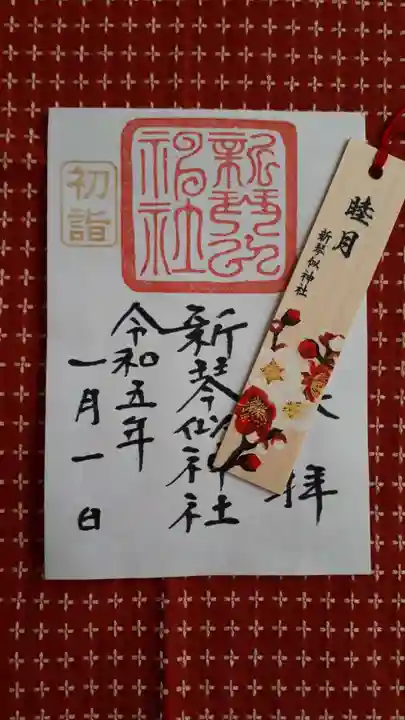 拝
新琴似神社
令和五年
一月一日
新琴似神社
初詣
睦月
新琴似神社